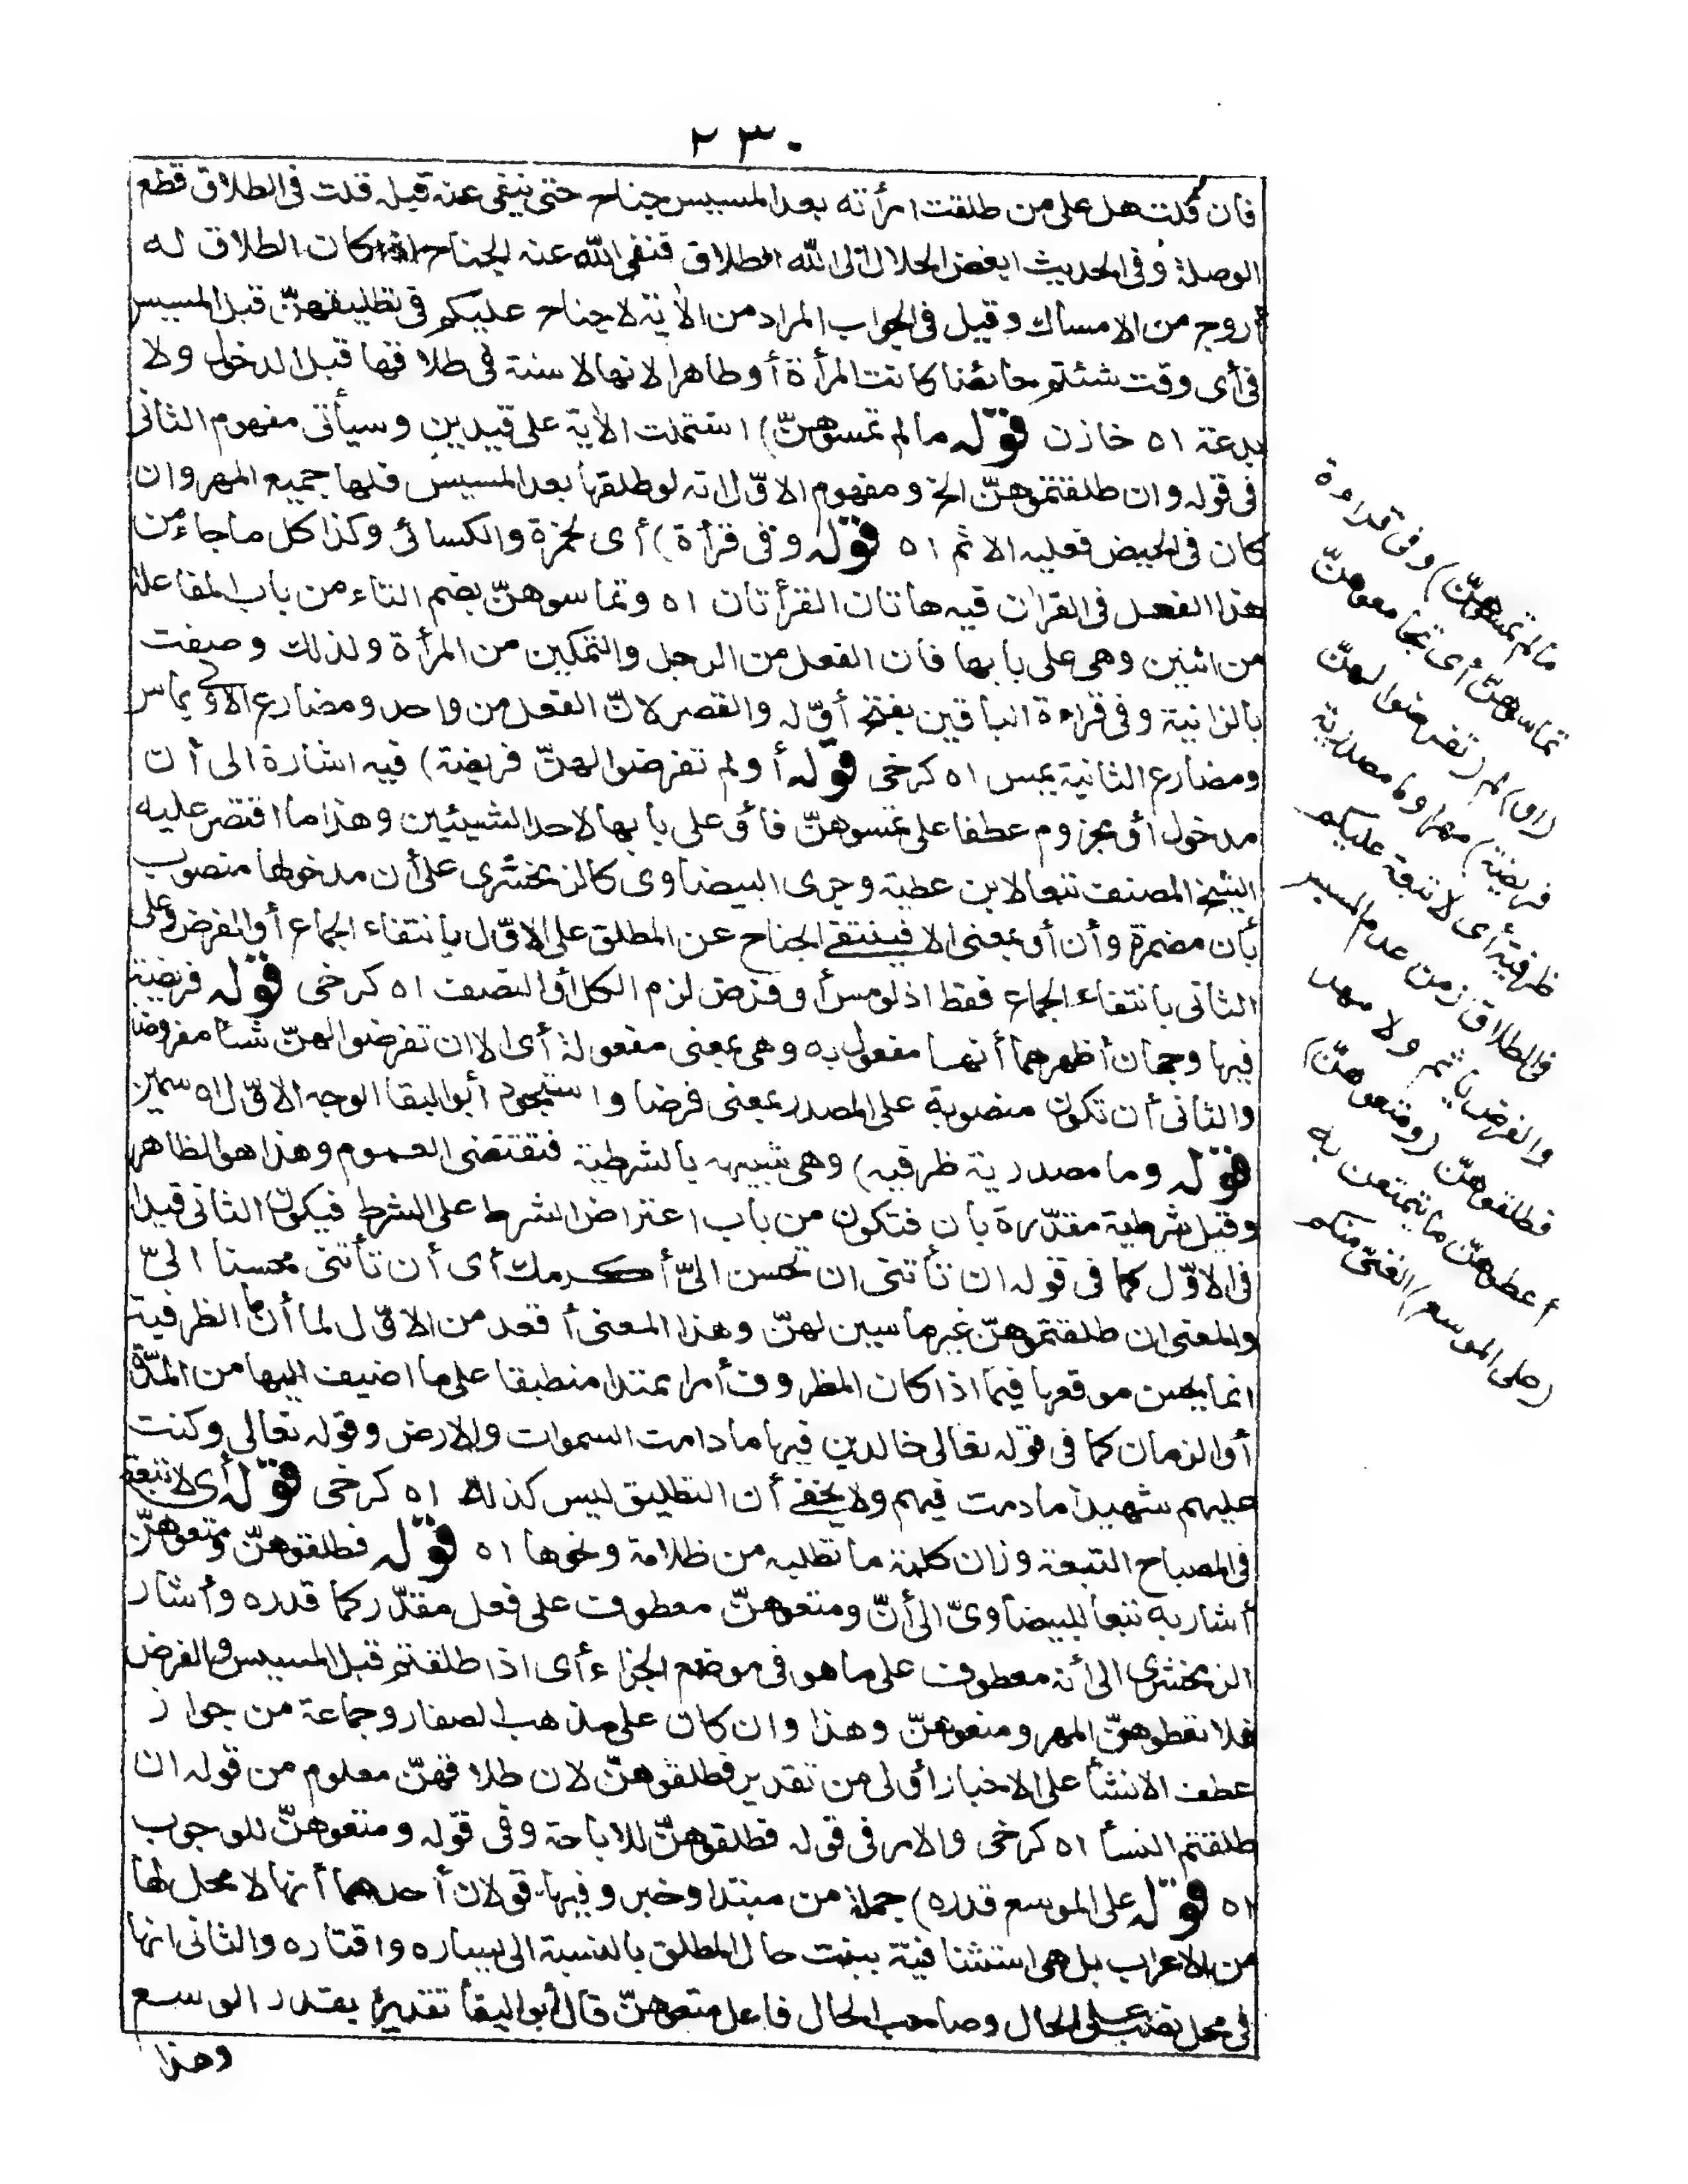 ٢٣٠
فان قلت هل على من طلقت امرأته بعد المسيس جناح حتى ينفى عنه قبله قلت فى الطلاق قطع
الوصلة وفى الحديث ابغض الحلال الى الله الطلاق فنفى الله عنه الجناح اذا كان الطلاق له
أروح من الامساك وقيل فى الجواب المراد من الأية لا جناح عليكم فى تطليقهنّ قبل المسيس
فى أى وقت شئتم حائضا كانت المرأة أو طاهرا لانها لا سنة فى طلاقها قبل الدخول ولا
بدعة اه خازن قوله ما لم تمسوهنّ) اشتملت الأية على قيدين وسيأتى مفهوم الثانى
فى قوله وان طلقتموهنّ الخ ومفهوم الاوّل انه لو طلقها بعد المسيس فلها جميع المهر وان
كان فى الحيض فعليه الاثم اه قوله وفى قرأة) أى لحمزة والكسائى وكذا كل ما جاء من
هذا الفعل فى القران فيه هاتان القرأتان اه وتماسوهنّ بضم التاء من باب المفاعلة
من اثنين وهى على بابها فان الفعل من الرجل والتمكين من المرأة ولذلك وصفت
بالزانية وفى قراءة الباقين بفتح أوّله والقصر لانّ الفعل من واحد ومضارع الاولى يماس
ومضارع الثانية يمس اه كرخى قوله أو لم تفرضوا لهنّ فريضة) فيه اشارة الى أن
مدخول أو مجزوم عطفا على تمسوهنّ فأو على بابها لاحد الشيئين وهذا ما اقتصر عليه
الشيخ المصنف تبعا لابن عطية وجرى البيضاوى كالزمخشرى على أن مدخولها منصوب
بأن مضمرة وأن أو بمعنى الا فينتفى الجناح عن المطلق على الاوّل بانتفاء الجماع أو الفرض وعلى
الثانى بانتفاء الجماع فقط اذ لو مس أو فرض لزم الكل أو النصف اه كرخى قوله فريضة
فيها وجهان أظهرهما أنها مفعول به وهى بمعنى مفعولة أى الا ان تفرضوا لهنّ شئا مفروضا
والثانى أن تكون منصوبة على المصدر بمعنى فرضا واستجود أبو البقا الوجه الاوّل اه سمين
قوله وما مصدرية ظرفيه) وهى شبيهه بالشرطية فتقتضى العموم وهذا هو الظاهر
وقيل شرطية مقدّرة بان فتكون من باب اعتراض الشرط على الشرط فيكون الثانى قيدا
فى الاوّل كما فى قوله ان تأتنى ان تحسن الىّ أكرمك أى أن تأتنى محسنا الىّ
والمعنى ان طلقتموهنّ غير ماسين لهنّ وهذا المعنى أقعد من الاوّل لما أن ما الظرفية
انما يحسن موقعها فيما اذا كان المظروف أمرا ممتدا منطبقا على ما اضيف اليها من المدّة
أو الزمان كما فى قوله تعالى خالدين فيها ما دامت السموات والارض وقوله تعالى وكنت
عليهم شهيدا ما دمت فيهم ولا يخفى أن التطليق ليس كذلك اه كرخى قوله أى لا تبعة
فى المصباح التبعة وزان كلمة ما تطلبه من ظلامة ونحوها اه قوله فطلقوهنّ ومتعوهنّ
أشار به تبعا للبيضاوىّ الى أنّ ومتعوهنّ معطوف على فعل مقدّر كما قدره وأشار
الزمخشرى الى أنه معطوف على ما هو فى موضع الجزاء أى اذا طلقتم قبل المسيس والفرض
فلا تعطوهنّ المهر ومتعوهنّ وهذا وان كان على مذهب الصفار وجماعة من جواز
عطف الانشأ على الاخبار أولى من تقدير فطلقوهنّ لان طلاقهنّ معلوم من قوله ان
طلقتم النسأ اه كرخى والامر فى قوله فطلقوهنّ للاباحة وفى قوله ومتعوهنّ للوجوب
اه قوله على الموسع قدره) جملة من مبتدا وخبر وفيها قولان أحدهما أنها لا محل لها
من الاعراب بل هى استئنافية بينت حال المطلق بالنسبة الى يساره واقتاره والثانى انها
فى محل نصب على الحال وصاحب الحال فاعل متعوهنّ قال أبو البقأ تقديره بقدر الوسع
وهذا
ما لم تمسوهنّ) وفى قراءة
تماسوهنّ أى تجامعوهنّ
(او) لم (تفرضوا لهنّ
فريضة) مهرا وما مصدرية
ظرفية أى لا تبعة عليكم
فى الطلاق زمن عدم المسيس
والفرض باثم ولا مهر
فطلقوهنّ (ومتعوهنّ)
أعطوهنّ ما يتمتعن به
(على الموسع) الغنىّ منكم